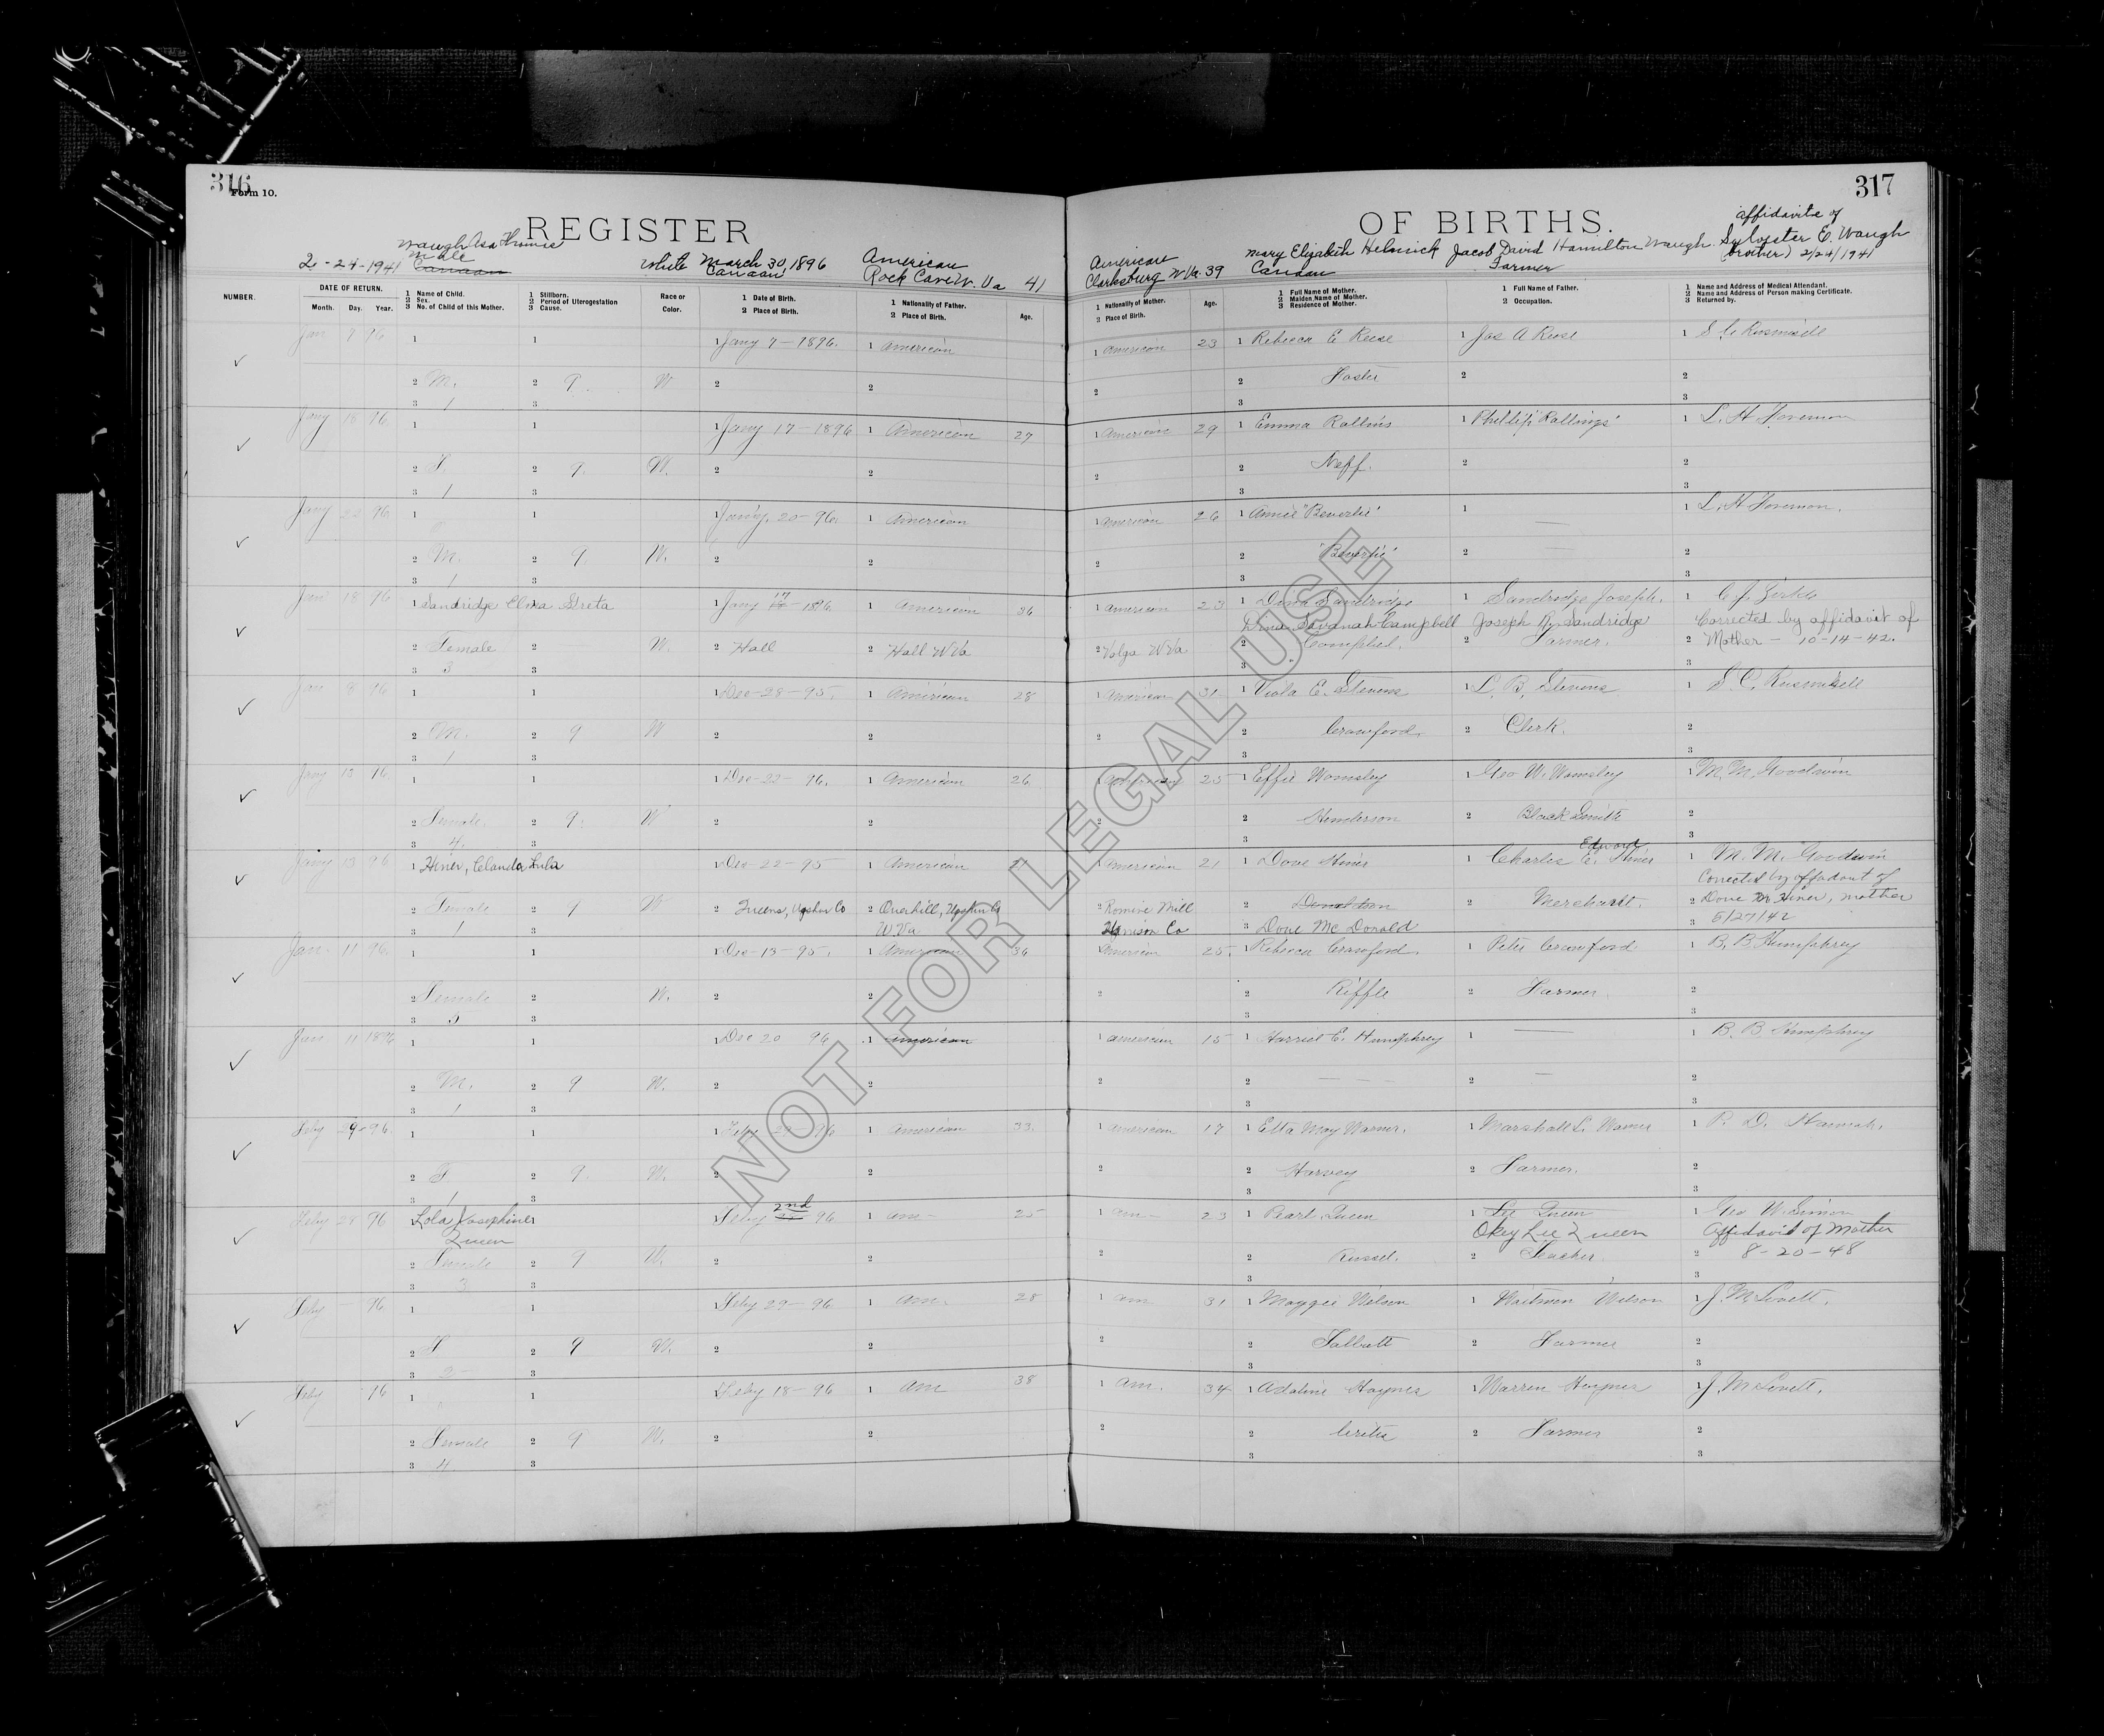 316
Form 10.
317
REGISTER OF BIRTHS.
Waugh Asa Thomas
Male
2 - 24 - 1941 Canaan White March 30, 1896 Canaan American Rock Cave W. Va 41
American Clarksburg W Va. 39 Mary Elizabeth Helmick Canaan Jacob David Hamilton Waugh Farmer
affidavit of Sylvester E. Waugh (brother) 2/24/1941
NUMBER.
DATE OF RETURN.
Month. Day. Year.
1 Name of Child.
2 Sex.
3 No. of Child of this Mother.
1 Stillborn.
2 Period of Uterogestation
3 Cause.
Race or Color.
1 Date of Birth.
2 Place of Birth.
1 Nationality of Father.
2 Place of Birth.
Age.
1 Nationality of Mother.
2 Place of Birth.
Age.
1 Full Name of Mother.
2 Maiden Name of Mother.
3 Residence of Mother.
1 Full Name of Father.
2 Occupation.
1 Name and Address of Medical Attendant.
2 Name and Address of Person making Certificate.
3 Returned by.
Jan 9 96 1 1 1 Jany 7 - 1896. 1 American 1 American 23 1 Rebecca E Reese 1 Jas A Reese 1
2 M. 2 9. W 2 2 2 2 Foster 2 2
3 1 3 3 3
Jany 18 96 1 1 1 Jany 17 - 1896 1 American 27 1 American 29 1 Emma Rollins 1 Phillip "Rollings" 1
2 F. 2 9. W. 2 2 2 2 Neff. 2 2
3 1 3 3 3
Jany 22 96 1 1 1 Jan'y. 20 - 96. 1 American 1 American 26 1 Annie "Beverlie" 1 1
2 M. 2 9 W. 2 2 2 2 "Beverlie" 2 2
3 1 3 3 3
Jan 18 96 1 Sandridge Elma Greta 1 Jany 17 - 1896 1 American 36 1 American 23 1 Sandridge 1 Sandridge Joseph. 1 C. J. Zirkle
Savanah Campbell Joseph N. Sandridge Corrected by affidavit of
2 Female 2 W. 2 Hall 2 Hall W Va 2 Volga W Va 2 2 Farmer. 2 Mother - 10-14-42.
3 3 3 3 3
Jan 8 96 1 1 1 Dec - 28 - 95. 1 American 28 1 American 31 1 Viola E. Stevens 1 L. B. Stevens 1
2 M. 2 9 W 2 2 2 2 Crawford. 2 Clerk. 2
3 1 3 3 3
Jany 13 96 1 1 1 Dec - 23 - 96. 1 American 26 1 American 25 1 Effie Womsley 1 Geo W. Womsley 1 M. M. Goodwin
2 Female. 2 9. W 2 2 2 2 Henderson 2 Black Smith 2
3 4. 3 3 3
Jany 13 96 1 Hiner, Clanda Lula 1 Dec - 22 - 95 1 American 1 American 21 1 Dove Hiner 1 Charles E. Edward Hiner 1 M. M. Goodwin
Corrected by affadavit of
2 Female 2 9 W 2 Queens, Upshur Co 2 Overhill, Upshur Co W. Va 2 Romine Mill 2 2 Merchant. 2 Dove M Hiner, mother
3 1 3 Harrison Co 3 Dove Mc Donald 3 5/27/42
Jan. 11 96 1 1 1 Dec - 13 - 95. 1 American 36 1 American 25. 1 Rebecca Crawford. 1 Peter Crawford 1 B. B Humphrey
2 Female 2 W. 2 2 2 2 Riffle 2 Farmer 2
3 5 3 3 3
Jan 11 1896 1 1 1 Dec 20 96 1 American 1 American 15 1 Harriet E. Humphrey 1 1 B. B. Humphrey
2 M. 2 9 W. 2 2 2 2 2 2
3 1 3 3 3
Feby 29 96. 1 1 1 Feby 96 1 American 33. 1 American 17 1 Etta May Warner. 1 Marshall L. Warner 1 P. D. Hannah.
2 F 2 9. W. 2 2 2 2 Harvey 2 Farmer. 2
3 1 3 3 3
Feby 28 96 Lola Josephine Queen 1 1 Feby 2nd 96 1 am - 25 1 am - 23 1 Pearl Queen 1 Queen 1 Geo W. Simon
Okey Lee Queen Affidavit of Mother
2 Female 2 9 W. 2 2 2 2 Russel. 2 Teacher. 2 8 - 20 - 48
3 3 3 3 3
Feby - 96 1 1 1 Feby 29 - 96 1 am. 28 1 am 31 1 Maggie Wilson 1 Waitman Wilson 1
2 F 2 9 W. 2 2 2 2 Talbott 2 Farmer 2
3 2 - 3 3 3
Feby 96 1 1 1 Feby 18 - 96 1 am 38 1 am. 34 1 Adaline Haynes 1 Warren Haynes 1
2 Female 2 9 W. 2 2 2 2 Crites 2 Farmer 2
3 4 3 3 3
NOT FOR LEGAL USE